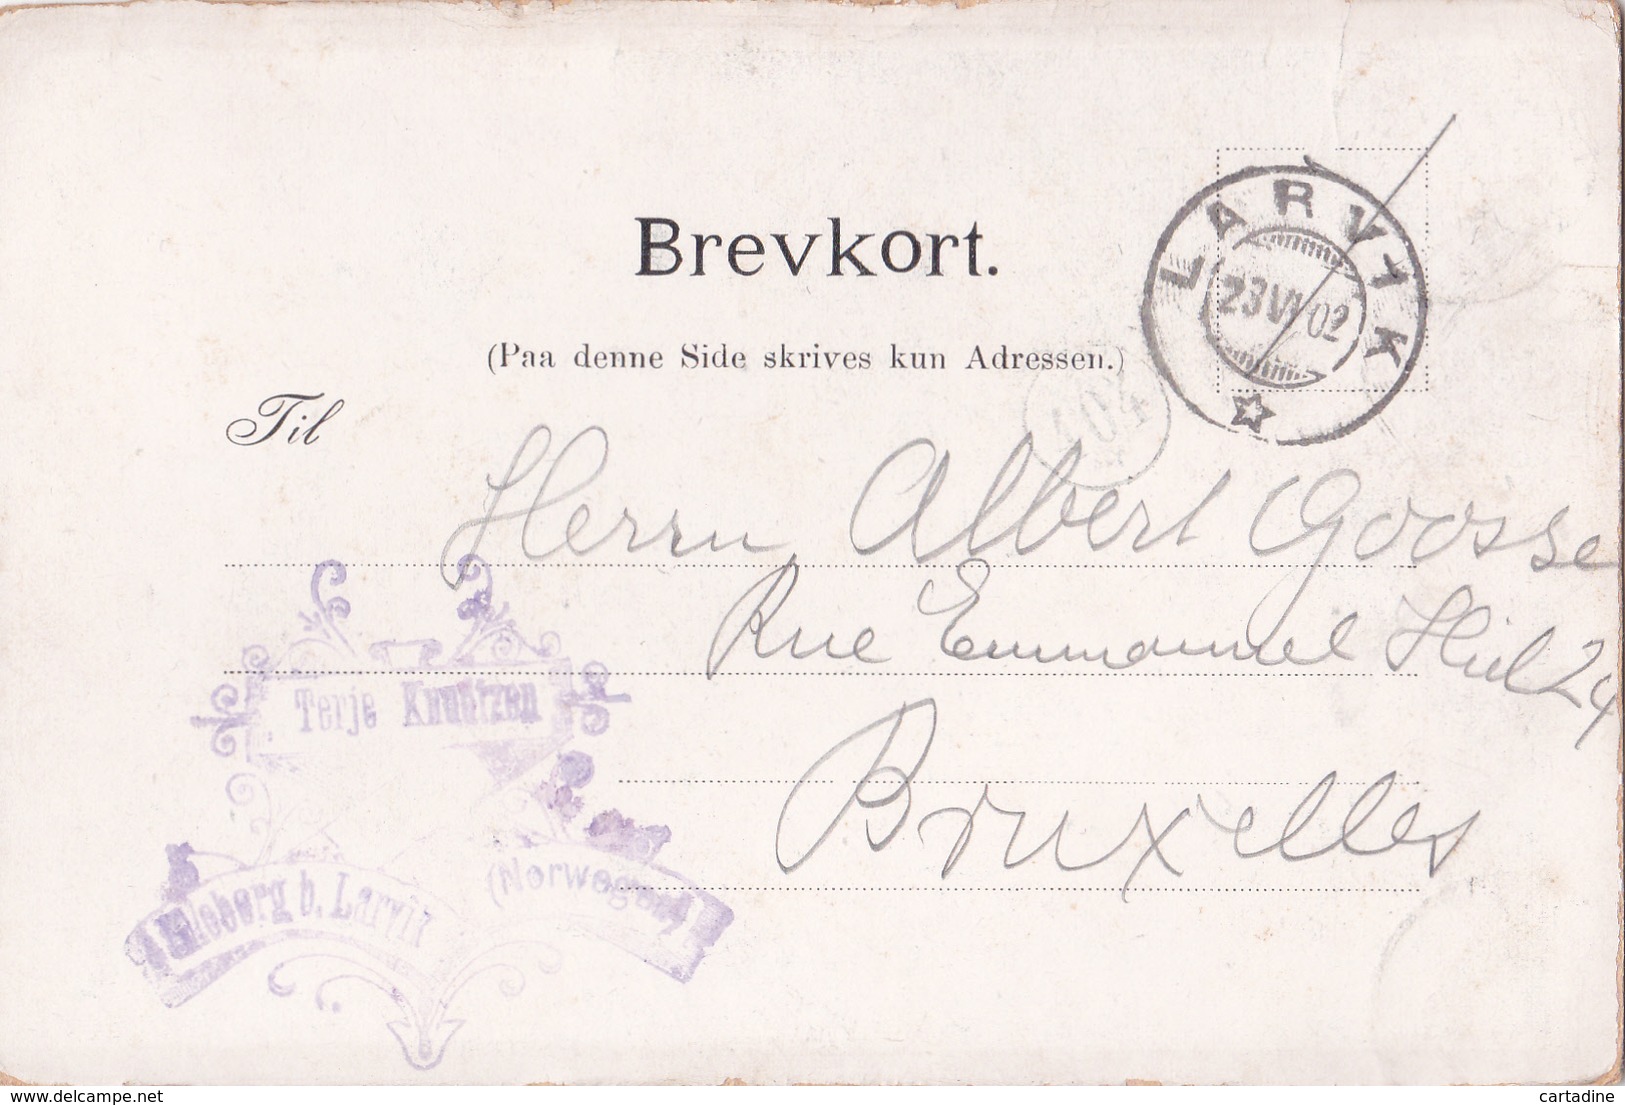 Brevkort.
LARVIK
23 VI 02
(Paa denne Side skrives kun Adressen.)
404
Til
Herrn Albert Goosse
Rue Emmanuel Hiel 24
Bruxelles
Terje Knudtzen
b. Larvik (Norwegen)
delcampe.net
cartadine